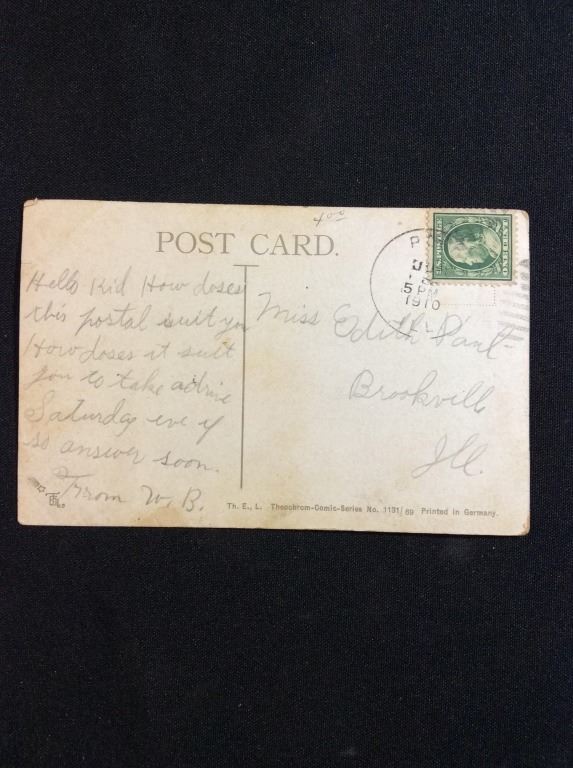 4 00
POST CARD.
Hello Kid How doses
this postal suit you
How doses it suit
you to take a drive
Saturday eve if
so answer soon.
From W. B.
Miss Edith Paul
Brookville
Ill.
P
5 PM
1910
ILL.
Th. E., L. Theochrom-Comic-Series No. 1131/69 Printed in Germany.